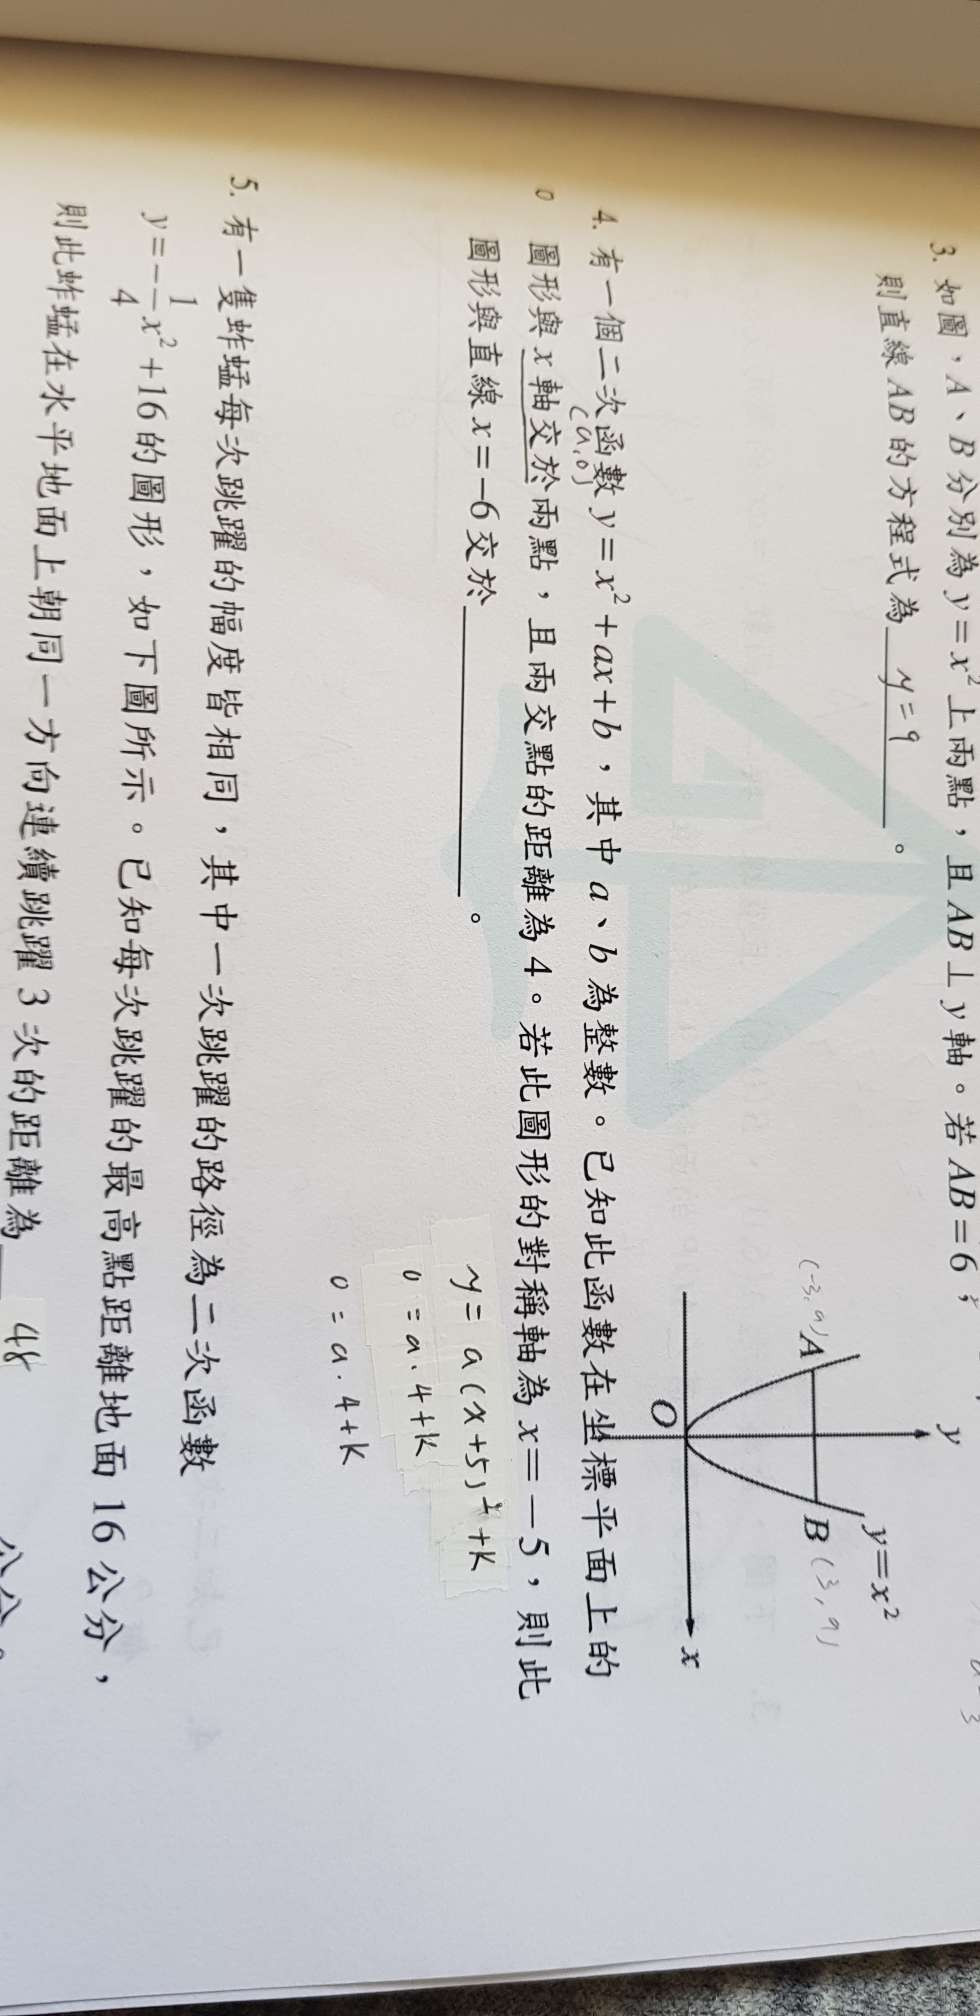 3. 如圖，A、B 分別為 y=x² 上兩點，且 AB⊥y 軸。若 AB=6，
則直線 AB 的方程式為 y=9 。
y
y=x²
(-3,9) A
B (3,9)
O
x
4. 有一個二次函數 y=x²+ax+b，其中 a、b 為整數。已知此函數在坐標平面上的
(a,0)
圖形與 x 軸交於兩點，且兩交點的距離為 4。若此圖形的對稱軸為 x=−5，則此
圖形與直線 x=−6 交於 。
y=a(x+5)²+k
0=a·4+k
0=a·4+k
5. 有一隻蚱蜢每次跳躍的幅度皆相同，其中一次跳躍的路徑為二次函數
y=−1/4x²+16 的圖形，如下圖所示。已知每次跳躍的最高點距離地面 16 公分，
則此蚱蜢在水平地面上朝同一方向連續跳躍 3 次的距離為 48 公分。